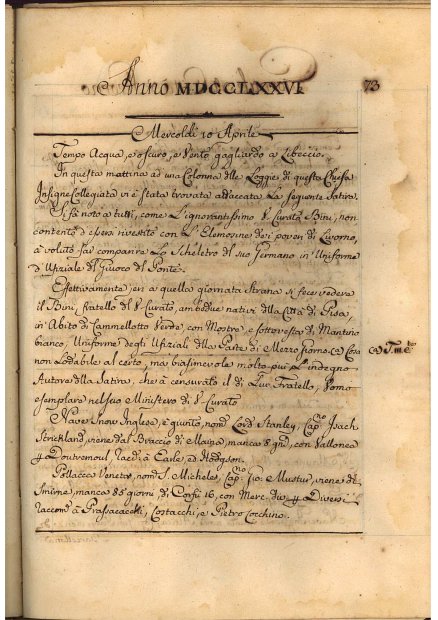 Anno MDCCLXXVI.
73
Mercoldi 10 Aprile
Tempo Acqua, e oscuro, e Vento gagliardo a Libeccio.
In questa mattina ad una Colonna delle Loggie di questa Chiesa
Insigne Collegiata vi è stata trovata attaccata La seguente Satira.
Si fà noto a tutti, come L'ignorantissimo S. Curato Bini, non
contento d'essersi rivestito con L'Elemosine de i poveri di Livorno,
à voluto far comparire Lo Scheletro del suo Germano in Uniforme
d'Ufiziale del Giuoco del Ponte.
Effettivamente, in a quella giornata Strana si fece vedere
il Bini, fratello del S. Curato, ambedue natii della Città di Pisa,
in Abito di Cammellotto Verde, con Mostre, e sottovesta di Mantino
bianco, Uniforme degli Ufiziali della Parte di Mezzo giorno, (a) Cosa
(a) T.
non Lodabile al certo, ma biasimevole molto più L'indegno
Autore della Satira, che à censurato il di Lui Fratello, Uomo
esemplare nel suo Ministero di S. Curato
Nave Snow Inglese, e quinto, nom. Lord Stanley, Cap.no Isach
Strickland, viene dal Braccio di Maina, manca 8 gni, con Vallonea
p Doutremoul racc. à Earle, ed Hodgson.
Pollacca Veneta, nom. S. Micheles, Cap.no Gio. Mustur, viene di
Smirne, manca 85 giorni di Corfù 16, con Merc. div. p Diversi
raccom. à Prassacacchi, Costacchi, e Pietro Cocchino.